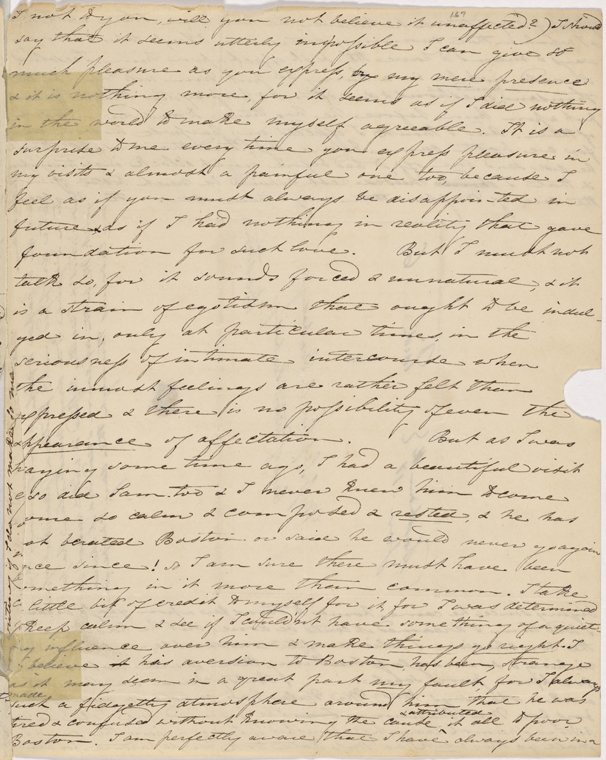 167
I not to you, will you not believe it unaffected?) I should
say that it seems utterly impossible I can give so
much pleasure as you express, by my mere presence
& it is nothing more, for it seems as if I did nothing
in the world to make myself agreeable. It is a
surprise to me every time you express pleasure in
my visits & almost a painful one too, because I
feel as if you must always be disappointed in
future & as if I had nothing in reality that gave
foundation for such love. But I must not
talk so, for it sounds forced & unnatural, & it
is a strain of egotism that ought to be indul-
ged in, only at particular times, in the
seriousness of intimate intercourse when
the inmost feelings are rather felt than
expressed & there is no possibility of even the
appearance of affectation. But as I was
saying some time ago, I had a beautiful visit
& so did Sam too & I never knew him to come
home so calm & composed & rested, & he has
not berated Boston or said he would never go again
once since! so I am sure there must have been
something in it more than common. I take
a little bit of credit to myself for it for I was determined
to keep calm & see if I couldn't have something of a quiet-
ing influence over him & make things go right. I
believe his aversion to Boston has been, strange
as it may seem in a great part my fault for I always
made
such a fidgetty atmosphere around him that he was
tired & confused without knowing the cause & attributed it all to poor
Boston. I am perfectly aware that I have always been in a